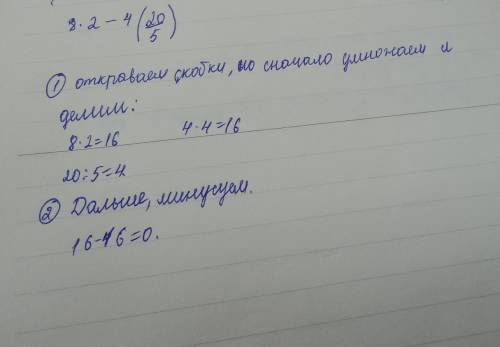 8·2-4(20/5)
① откраваем скобки, но сначало умножаем и
делим:
8·2=16 4·4=16
20÷5=4
② Дальше, минусуем.
16-16=0.